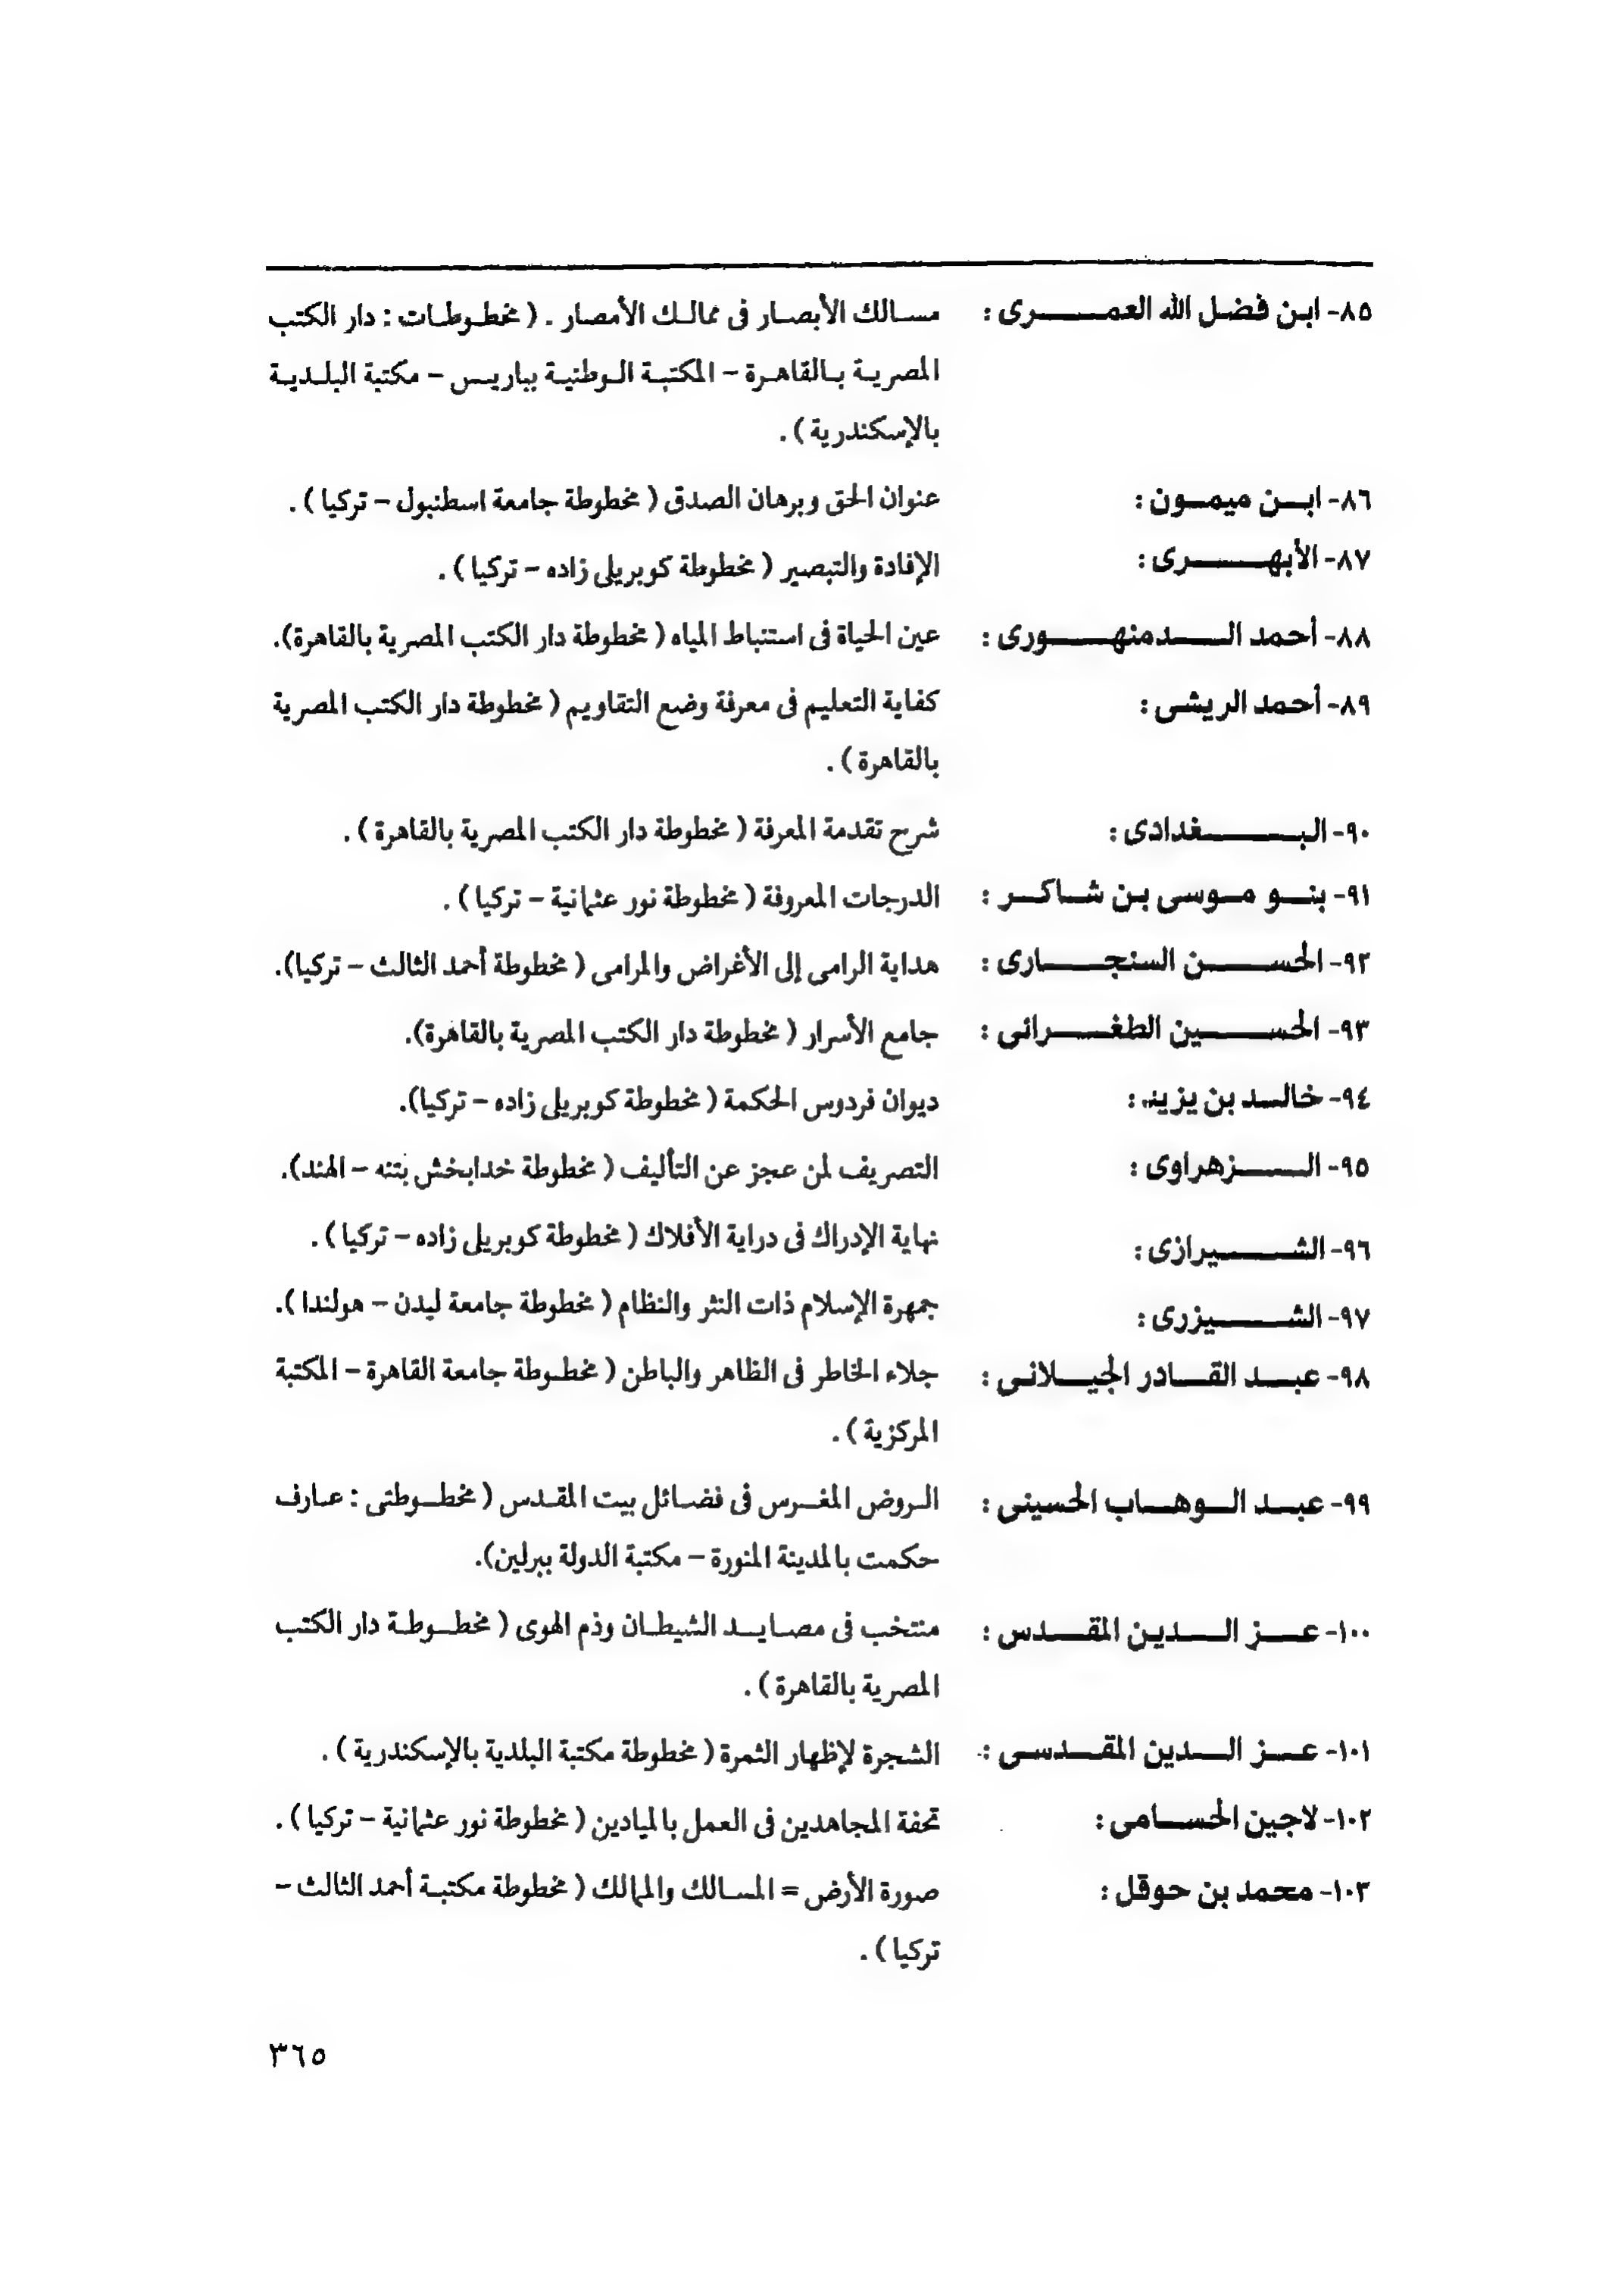 ٨٥- ابن فضل الله العمرى : مسالك الأبصار فى ممالك الأمصار . ( مخطوطات : دار الكتب
المصرية بالقاهرة – المكتبة الوطنية بباريس – مكتبة البلدية
بالإسكندرية ) .
٨٦- ابن ميمون : عنوان الحق وبرهان الصدق ( مخطوطة جامعة اسطنبول – تركيا ) .
٨٧- الأبهرى : الإفادة والتبصير ( مخطوطة كوبريلى زاده – تركيا ) .
٨٨- أحمد الدمنهورى : عين الحياة فى استنباط المياه ( مخطوطة دار الكتب المصرية بالقاهرة).
٨٩- أحمد الريشى : كفاية التعليم فى معرفة وضع التقاويم ( مخطوطة دار الكتب المصرية
بالقاهرة ) .
٩٠- البغدادى : شرح تقدمة المعرفة ( مخطوطة دار الكتب المصرية بالقاهرة ) .
٩١- بنو موسى بن شاكر : الدرجات المعروفة ( مخطوطة نور عثمانية – تركيا ) .
٩٢- الحسن السنجارى : هداية الرامى إلى الأغراض والمرامى ( مخطوطة أحمد الثالث – تركيا).
٩٣- الحسين الطغرائى : جامع الأسرار ( مخطوطة دار الكتب المصرية بالقاهرة).
٩٤- خالد بن يزيد : ديوان فردوس الحكمة ( مخطوطة كوبريلى زاده – تركيا).
٩٥- الزهراوى : التصريف لمن عجز عن التأليف ( مخطوطة خدابخش بتنه – الهند).
٩٦- الشيرازى : نهاية الإدراك فى دراية الأفلاك ( مخطوطة كوبريلى زاده – تركيا ) .
٩٧- الشيزرى : جمهرة الإسلام ذات النثر والنظام ( مخطوطة جامعة ليدن – هولندا ).
٩٨- عبد القادر الجيلانى : جلاء الخاطر فى الظاهر والباطن ( مخطوطة جامعة القاهرة – المكتبة
المركزية ) .
٩٩- عبد الوهاب الحسينى : الروض المغرس فى فضائل بيت المقدس ( مخطوطتى : عارف
حكمت بالمدينة المنورة – مكتبة الدولة ببرلين).
١٠٠- عز الدين المقدس : منتخب فى مصايد الشيطان وذم الهوى ( مخطوطة دار الكتب
المصرية بالقاهرة ) .
١٠١- عز الدين المقدسى : الشجرة لإظهار الثمرة ( مخطوطة مكتبة البلدية بالإسكندرية ) .
١٠٢- لاجين الحسامى : تحفة المجاهدين فى العمل بالميادين ( مخطوطة نور عثمانية – تركيا ) .
١٠٣- محمد بن حوقل : صورة الأرض = المسالك والممالك ( مخطوطة مكتبة أحمد الثالث –
تركيا ) .
٣٦٥